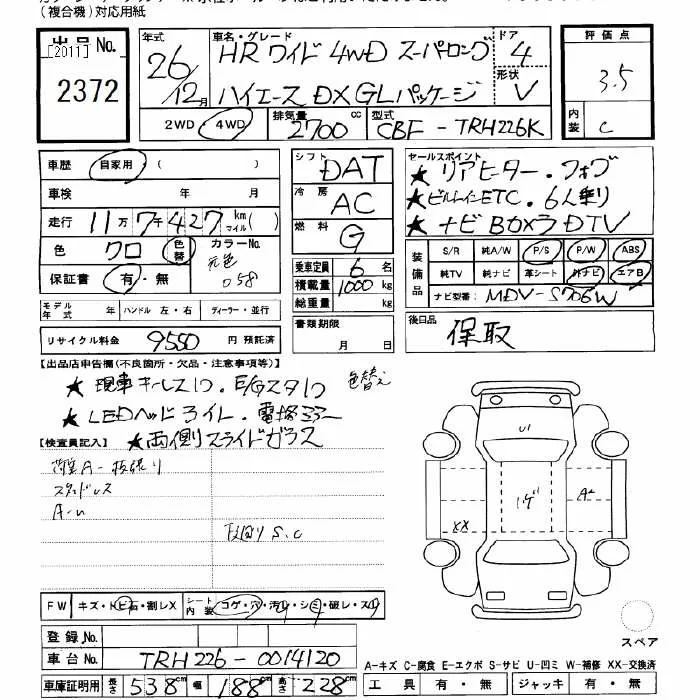 (複合機)対応用紙
出品No.
[2011]
2372
年式
26/12月
車名・グレード
HR ワイド 4WD スーパーロング
ハイエース DX GLパッケージ
ドア
4
形状
V
評価点
3.5
内装
C
2WD・4WD
排気量
2700 cc
型式
CBF-TRH226K
車歴 自家用 ( )
車検 年 月
走行 11万7千427 km マイル( )
色 クロ 色替
カラーNo.
元色
058
保証書 有・無
シフト
DAT
冷房
AC
燃料
G
乗車定員 6名
積載量 1000 kg
総重量 kg
セールスポイント
★ リアヒーター・フォグ
★ ビルトインETC・6人乗り
★ ナビ Bカメラ DTV
装備品
S/R 純A/W P/S P/W ABS
純TV 純ナビ 革シート 外ナビ エアB
ナビ型番: MDV-S706W
モデル年式 年 ハンドル 左・右 ディーラー・並行
リサイクル料金 9550 円 預託済
書類期限
月 日
後日品 保取
【出品店申告欄(不良箇所・欠品・注意事項等)】
★ 現車キーレス付・E/Gスタ付 色替え
★ LEDヘッドライト・電格ミラー
【検査員記入】 ★両側スライドガラス
荷室A-板張り
スタッドレス
A-U
下回りS.C
U1
コゲ
A2
XX
FW キズ・トビ石・割レX
シート内装 コゲ・穴・汚レ・シミ・破レ・スレ
登録No.
車台No. TRH226-0014120
車庫証明用 長さ 538cm 幅 188cm 高さ 228cm
スペア
A-キズ C-腐食 E-エクボ S-サビ U-凹ミ W-補修 XX-交換済
工具 有・無 ジャッキ 有・無